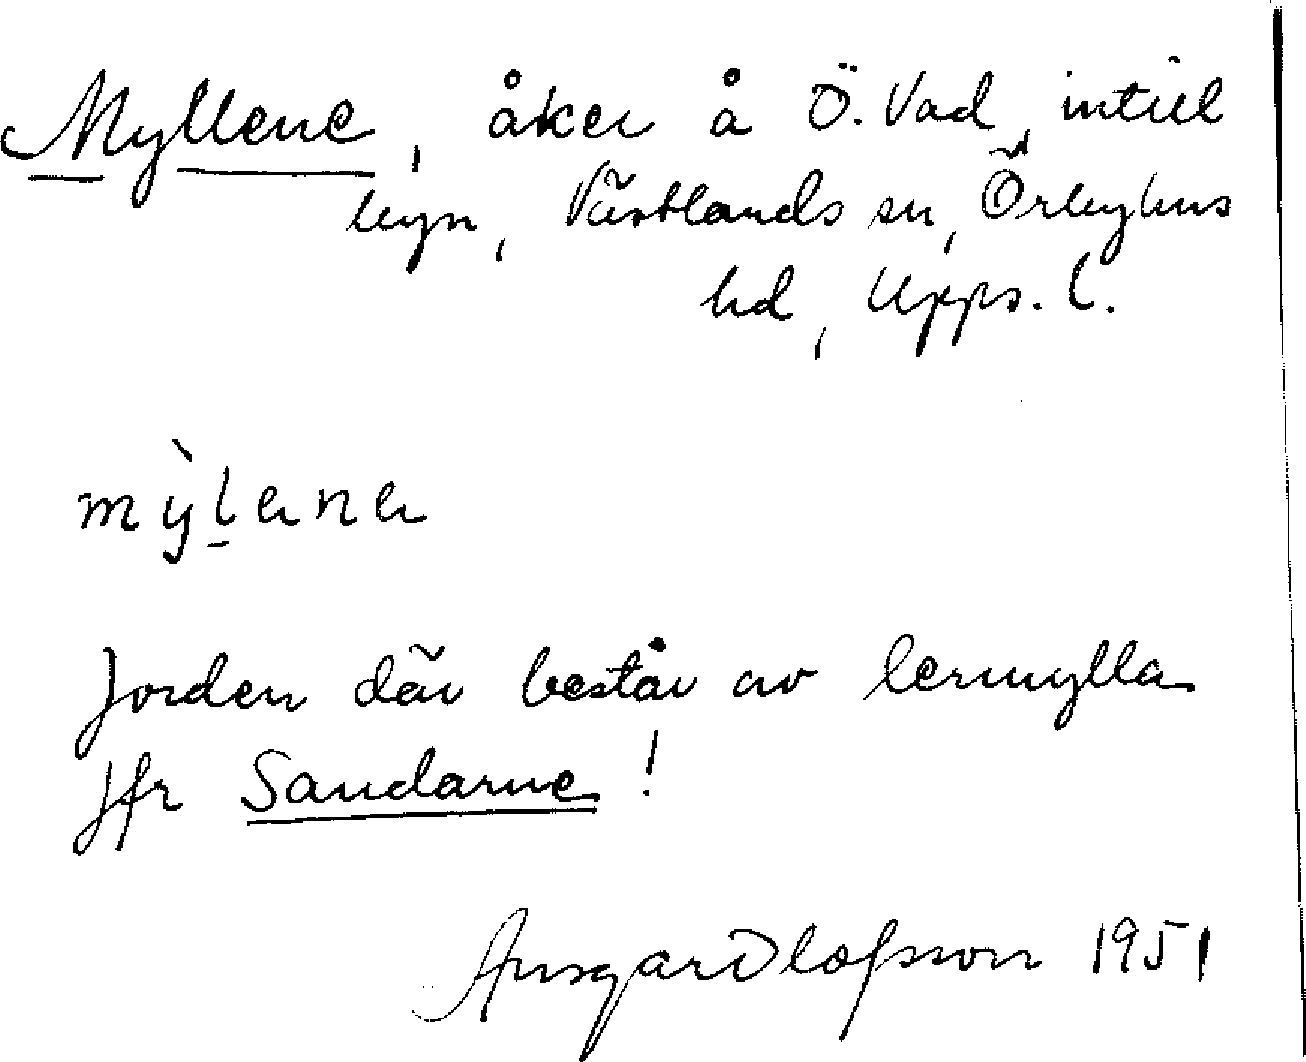 Myllene, åker å Ö. Vad, intill
byn, Västlands sn, Örbyhus
hd, Upps. l.
mỳlena
Jorden där består av lermylla
Jfr Sandarne !
Ansgar Olofsson 1951